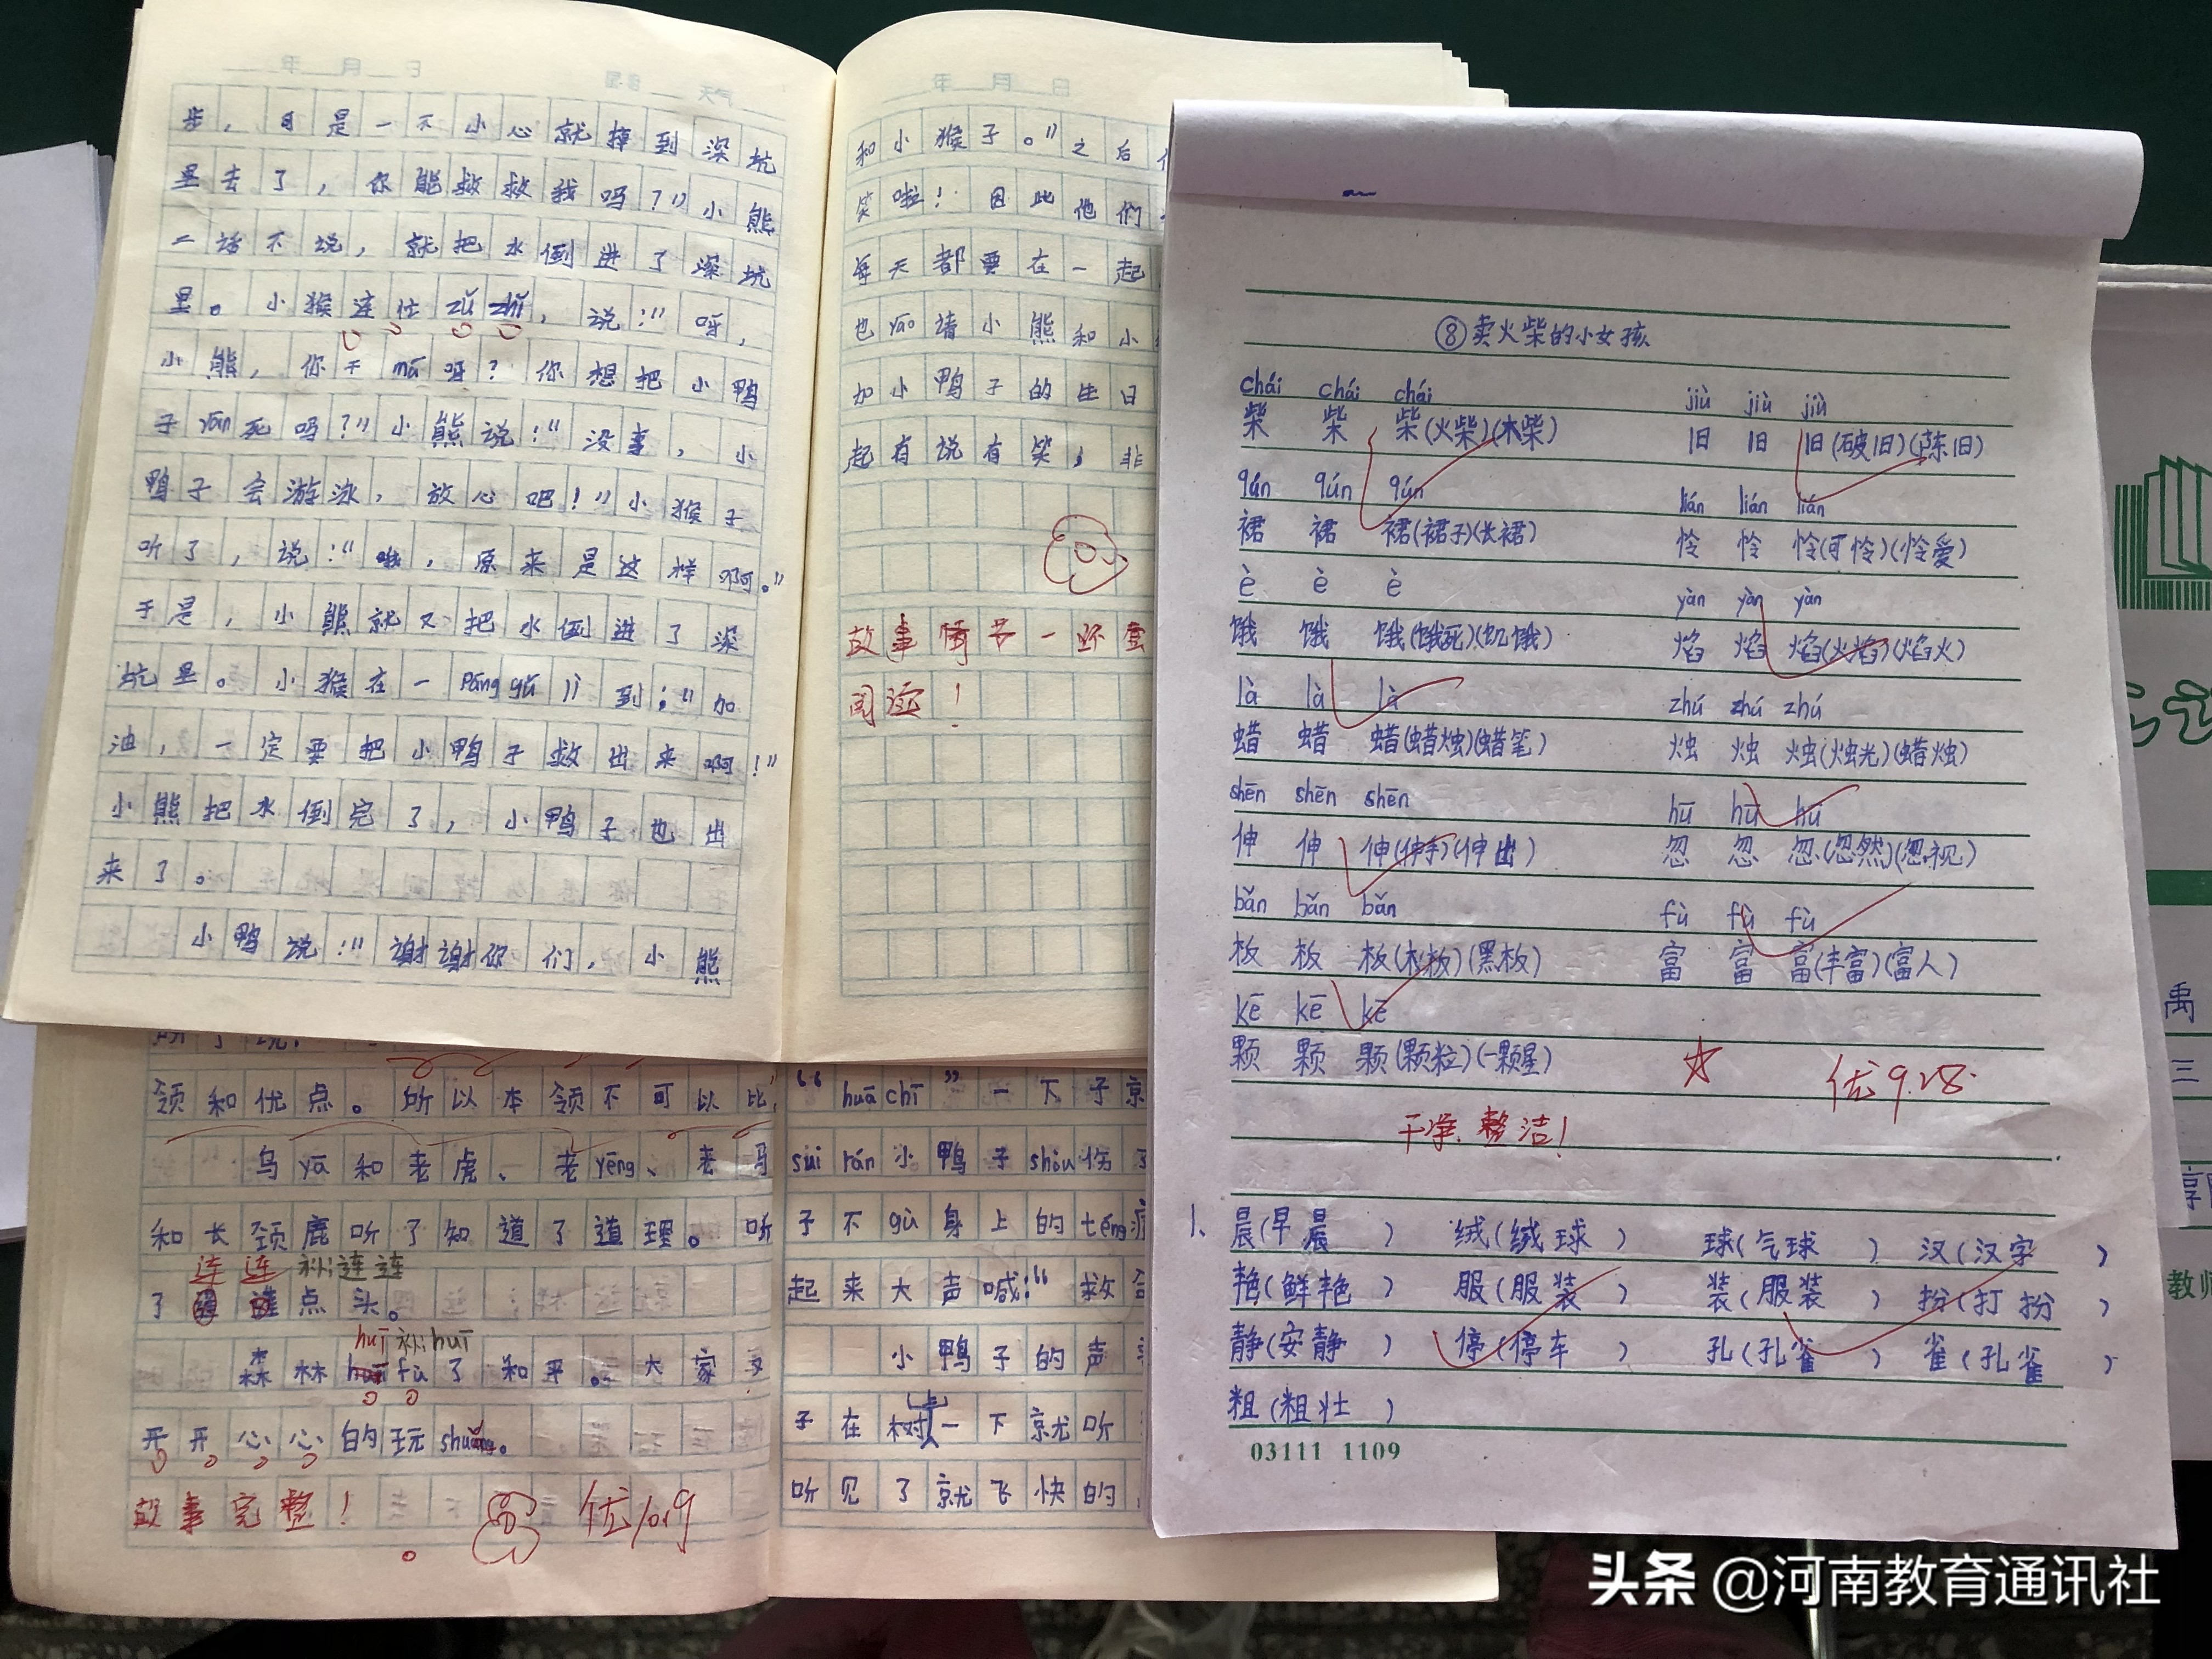 年 月 日
星期 天气
步，可是一不小心就掉到深坑
里去了，你能救救我吗？”小熊
二话不说，就把水倒进了深坑
里。小猴连忙zǔ zhǐ，说：“呀，
小熊，你干má呀？你想把小鸭
子yān死吗？”小熊说：“没事，小
鸭子会游泳，放心吧！”小猴子
听了，说：“哦，原来是这样啊。”
于是，小熊就又把水倒进了深
坑里。小猴在一páng gǔ lì到：“加
油，一定要把小鸭子救出来啊！”
小熊把水倒完了，小鸭子也出
来了。
小鸭说：“谢谢你们，小熊
年 月 日
和小猴子。”之后
笑啦！因此他们
每天都要在一起
也yāo请小熊和小
加小鸭子的生日
起有说有笑，非
故事情节一环套
阅读！
领和优点。所以本领不可以比
乌yā和老虎、老yēng、老马
和长颈鹿听了知道了道理。听
连连 补：连连
了 点头。
huī 补：huī
森林 fù了和平。大家又
开开心心的玩shuǎng。
故事完整！
优10.9
“huā chī”一下子
suī rán小鸭子shòu伤了
子不gù身上的téng
起来大声喊：“救
小鸭子的声
上
子在树一下就听
听见了就飞快的
⑧卖火柴的小女孩
chái chái chái jiù jiù jiù
柴 柴 柴(火柴)(木柴) 旧 旧 旧(破旧)(陈旧)
qún qún qún lián lián lián
裙 裙 裙(裙子)(长裙) 怜 怜 怜(可怜)(怜爱)
è è è yàn yàn yàn
饿 饿 饿(饿死)(饥饿) 焰 焰 焰(火焰)(焰火)
là là là zhú zhú zhú
蜡 蜡 蜡(蜡烛)(蜡笔) 烛 烛 烛(烛光)(蜡烛)
shēn shēn shēn hū hū hū
伸 伸 伸(伸手)(伸出) 忽 忽 忽(忽然)(忽视)
bǎn bǎn bǎn fù fù fù
板 板 板(木板)(黑板) 富 富 富(丰富)(富人)
kē kē kē
颗 颗 颗(颗粒)(一颗星)
优9.28.
干净、整洁！
1、晨(早晨) 绒(绒球) 球(气球) 汉(汉字)
艳(鲜艳) 服(服装) 装(服装) 扮(打扮)
静(安静) 停(停车) 孔(孔雀) 雀(孔雀)
粗(粗壮)
03111 1109
禹
三
教师
头条 @河南教育通讯社